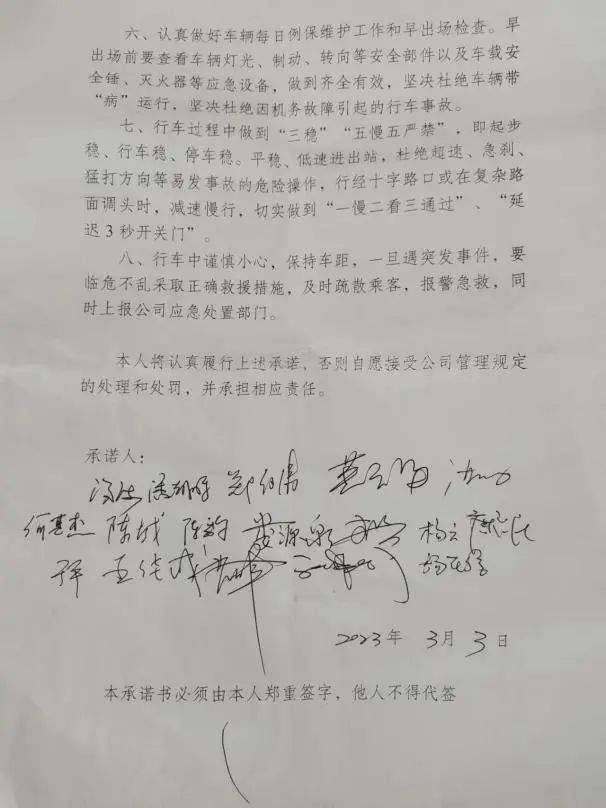 六、认真做好车辆每日例保维护工作和早出场检查。早
出场前要查看车辆灯光、制动、转向等安全部件以及车载安
全锤、灭火器等应急设备，做到齐全有效，坚决杜绝车辆带
“病”运行，坚决杜绝因机务故障引起的行车事故。
七、行车过程中做到“三稳”“五慢五严禁”，即起步
稳、行车稳、停车稳。平稳、低速进出站，杜绝超速、急刹、
猛打方向等易发事故的危险操作，行经十字路口或在复杂路
面调头时，减速慢行，切实做到“一慢二看三通过”、“延
迟3秒开关门”。
八、行车中谨慎小心，保持车距，一旦遇突发事件，要
临危不乱采取正确救援措施，及时疏散乘客，报警急救，同
时上报公司应急处置部门。
本人将认真履行上述承诺，否则自愿接受公司管理规定
的处理和处罚，并承担相应责任。
承诺人：
何其杰 陈城 源泉 杨立
2023年 3月 3日
本承诺书必须由本人郑重签字，他人不得代签